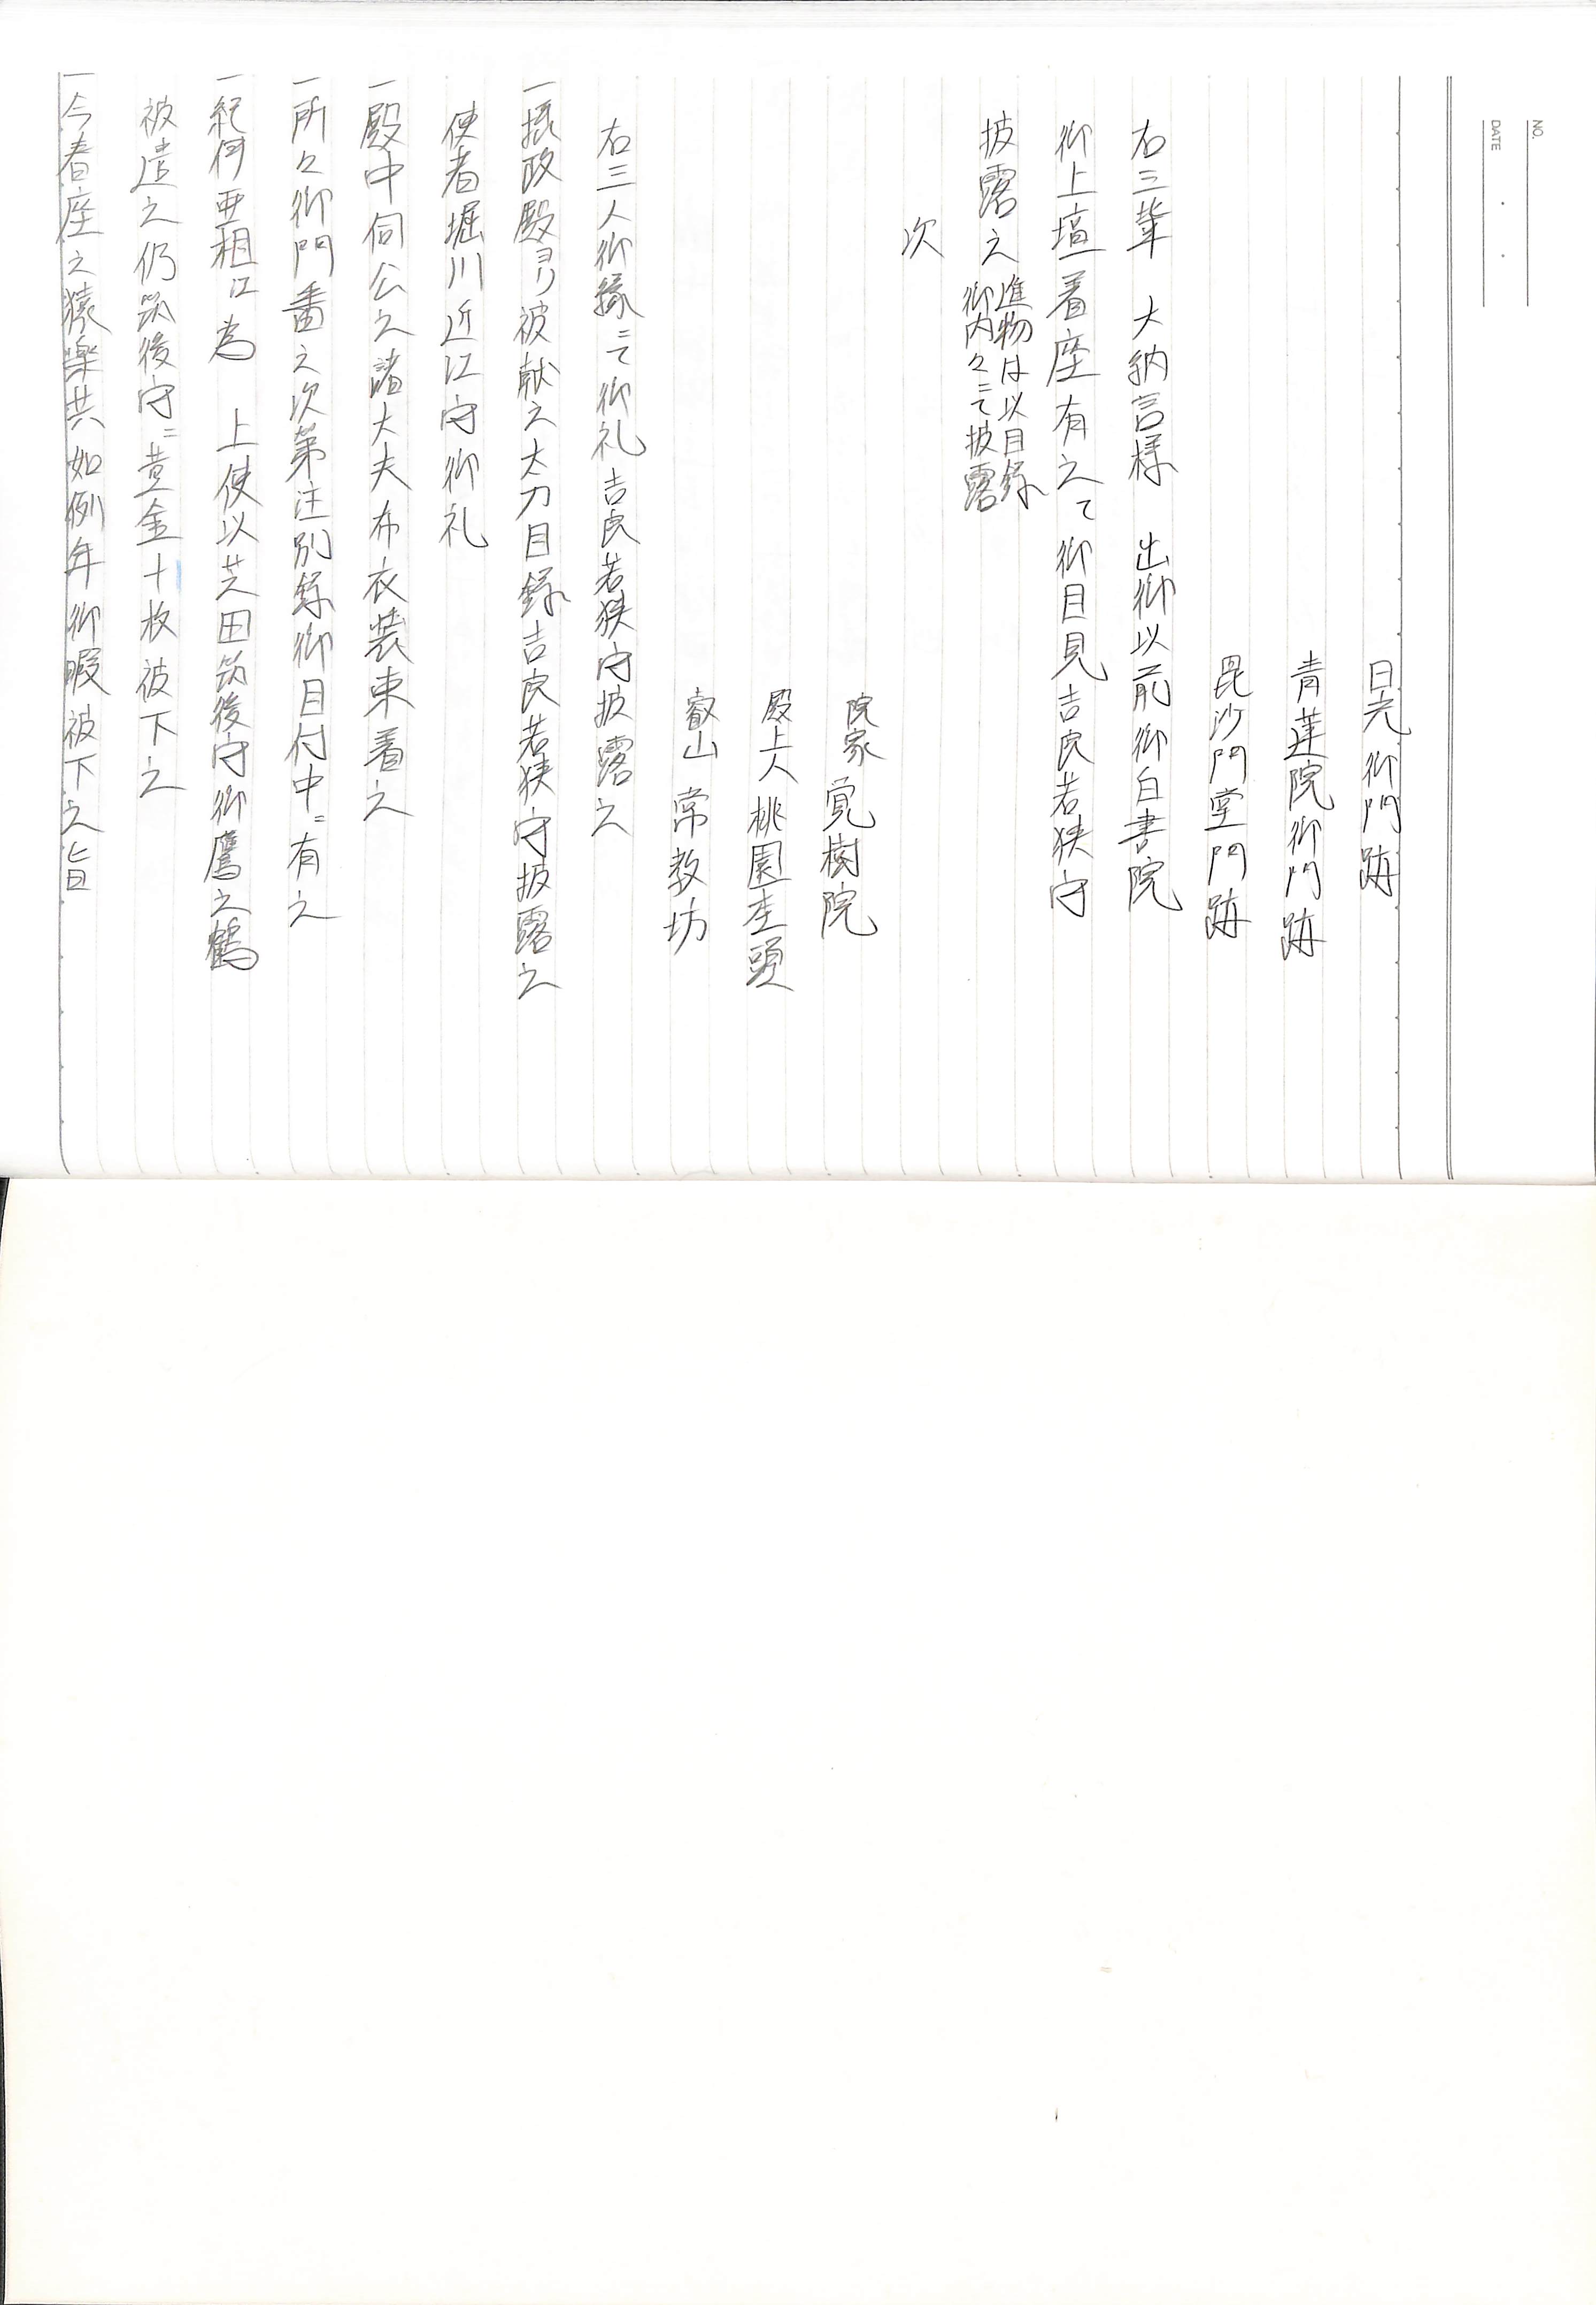 NO.
DATE
日光御門跡
青蓮院御門跡
毘沙門堂門跡
右三輩　大納言様　出御以前御白書院
御上壇着座有之て御目見吉良若狭守
披露之
進物は以目録
御内々ニて披露
次
院家 覚樹院
殿上人 桃園杢頭
叡山 常教坊
右三人御縁ニて御礼吉良若狭守披露之
一摂政殿ヨリ被献之太刀目録吉良若狭守披露之
使者堀川近江守御礼
一殿中伺公之諸大夫布衣装束着之
一所々御門番之次第注別録御目付中ニ有之
一紀伊亜相江為　上使以芝田筑後守御鷹之鶴
被遣之仍筑後守ニ黄金十枚被下之
一今春座之猿楽共如例年御暇被下之旨